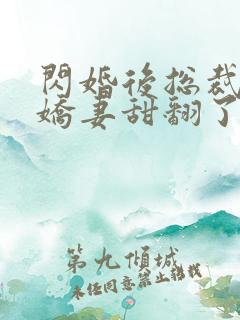 閃婚後總裁
嬌妻甜翻了
第九傾城
未經同意禁止轉載